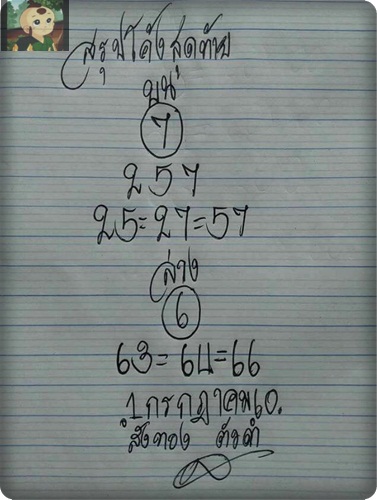 สรุปโค้งสุดท้าย
บน
7
257
25=27=57
ล่าง
6
63=64=66
1 กรกฎาคม 60.
สังข์ทอง